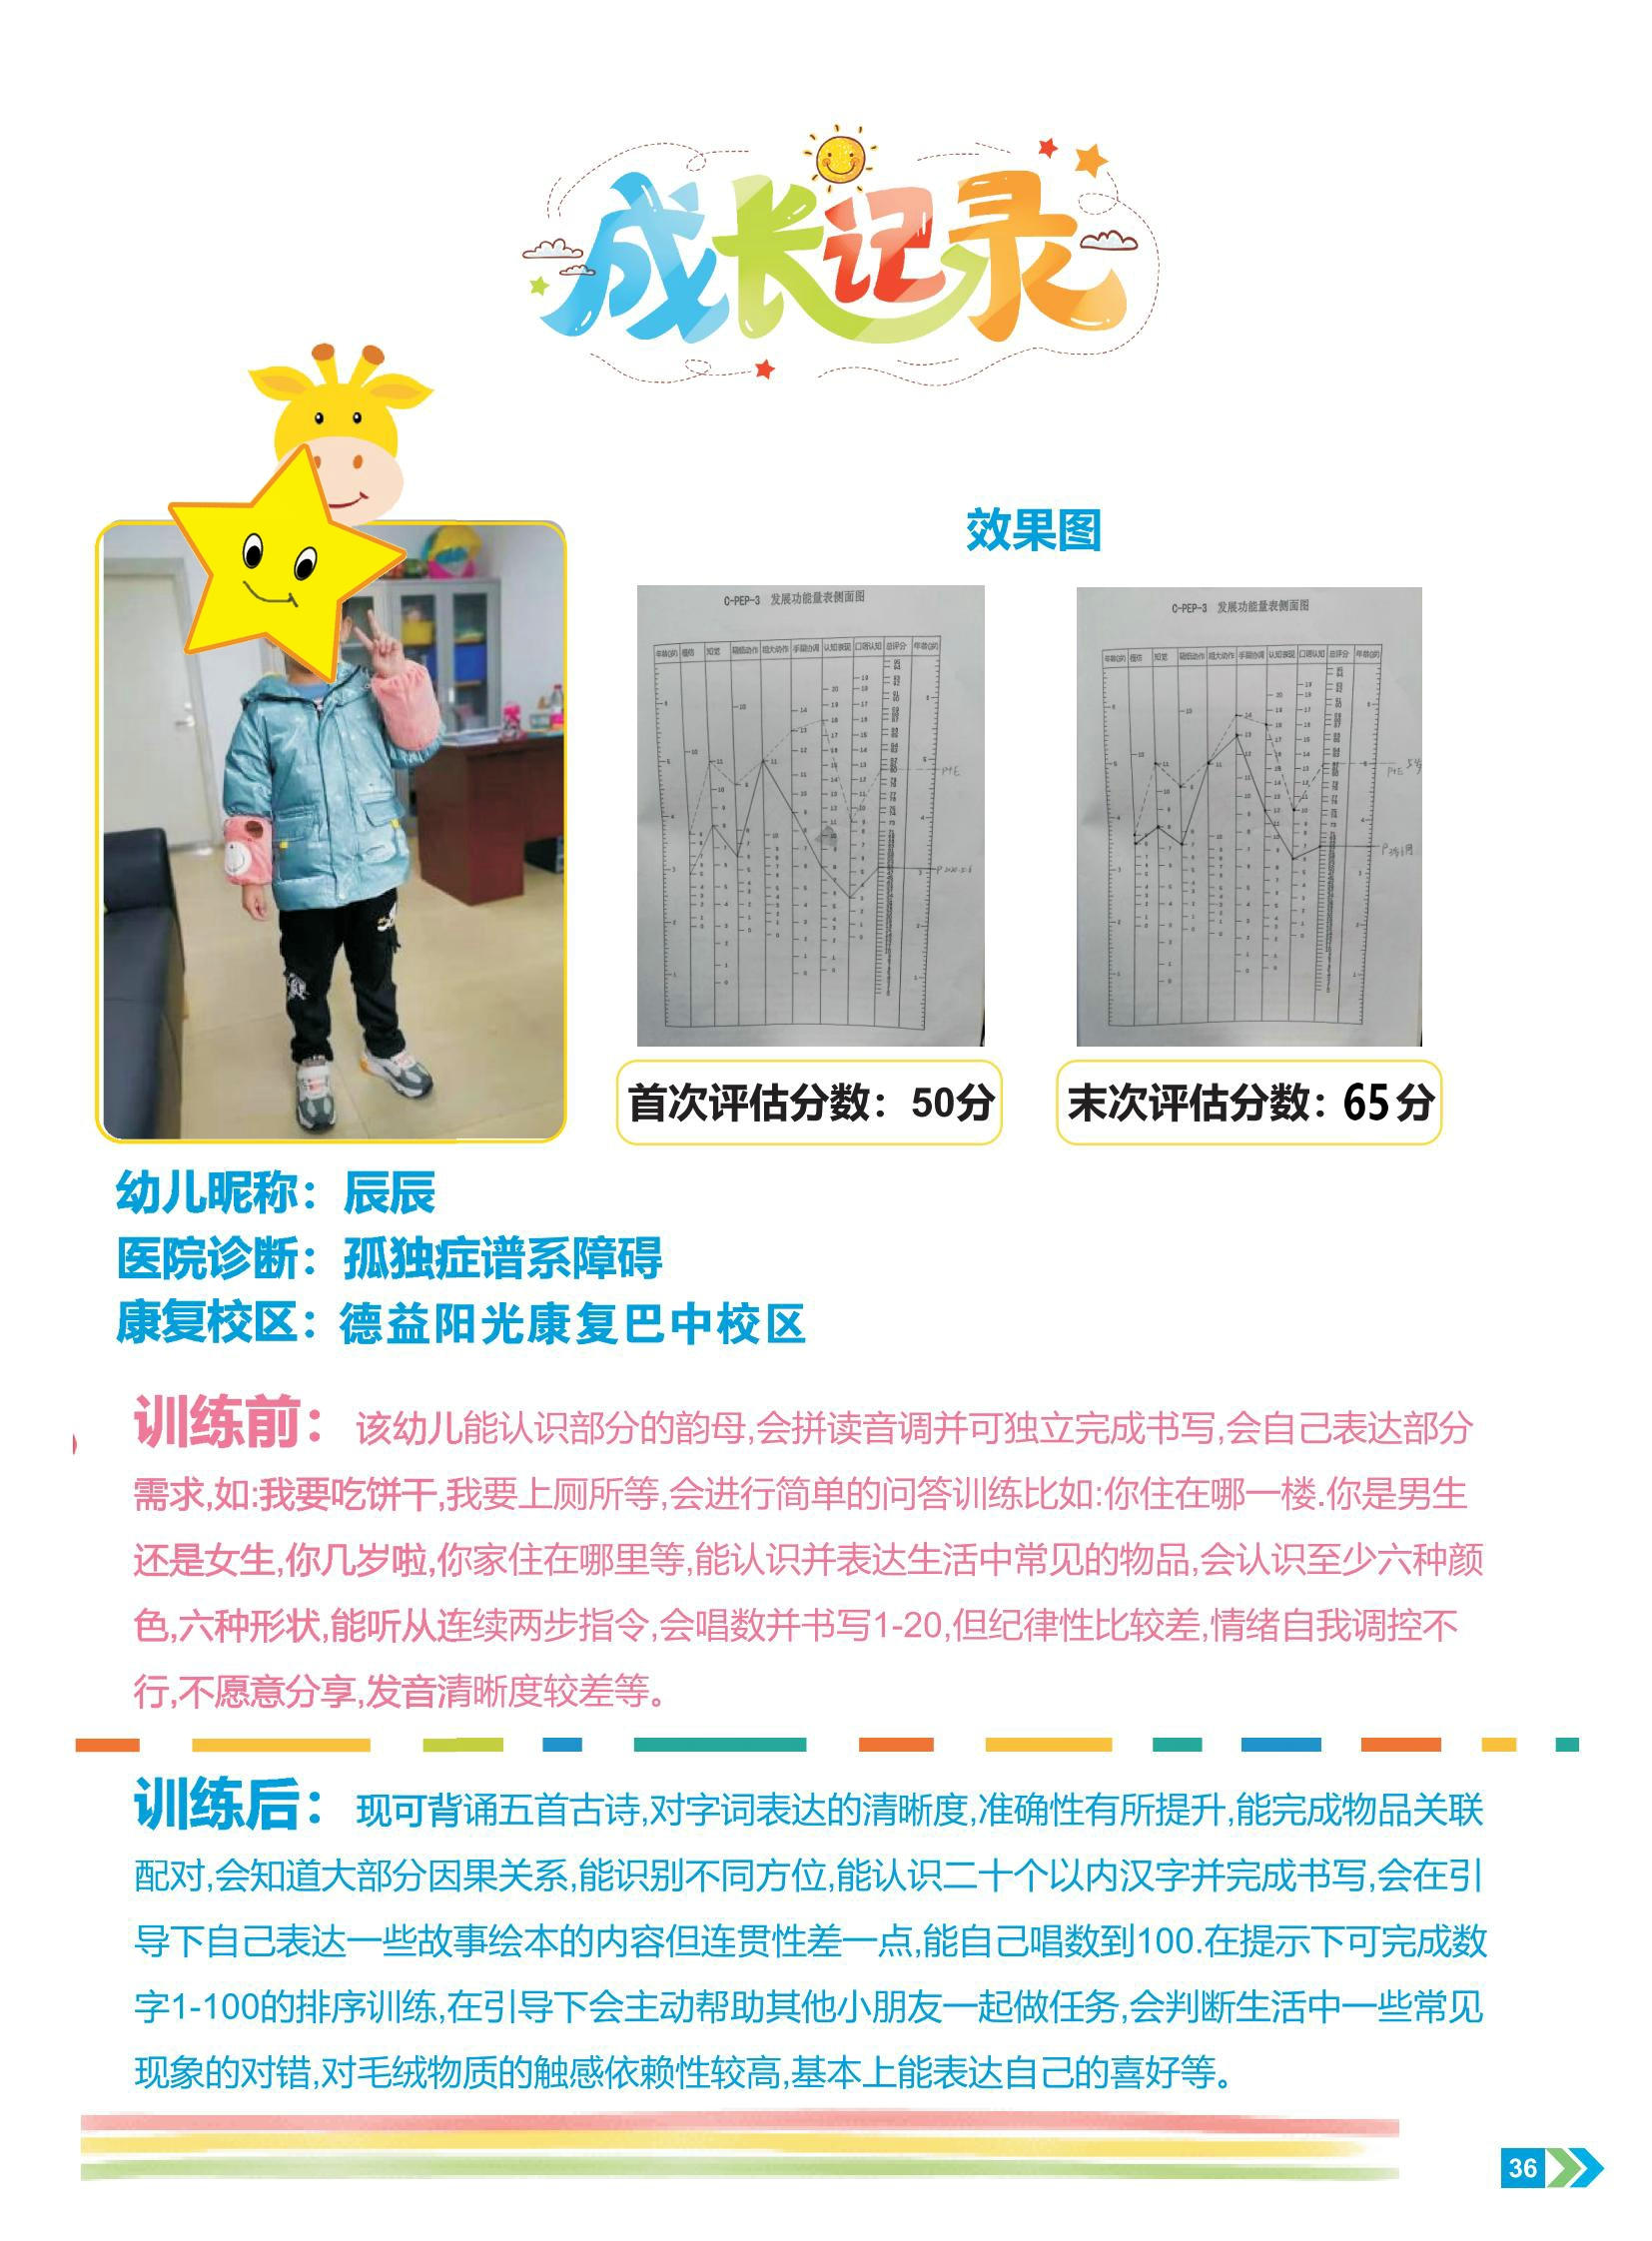 成长记录
效果图
C-PEP-3 发展功能量表侧面图
C-PEP-3 发展功能量表侧面图
首次评估分数：50分
末次评估分数：65分
幼儿昵称：辰辰
医院诊断：孤独症谱系障碍
康复校区：德益阳光康复巴中校区
训练前：该幼儿能认识部分的韵母,会拼读音调并可独立完成书写,会自己表达部分
需求,如:我要吃饼干,我要上厕所等,会进行简单的问答训练比如:你住在哪一楼.你是男生
还是女生,你几岁啦,你家住在哪里等,能认识并表达生活中常见的物品,会认识至少六种颜
色,六种形状,能听从连续两步指令,会唱数并书写1-20,但纪律性比较差,情绪自我调控不
行,不愿意分享,发音清晰度较差等。
训练后：现可背诵五首古诗,对字词表达的清晰度,准确性有所提升,能完成物品关联
配对,会知道大部分因果关系,能识别不同方位,能认识二十个以内汉字并完成书写,会在引
导下自己表达一些故事绘本的内容但连贯性差一点,能自己唱数到100.在提示下可完成数
字1-100的排序训练,在引导下会主动帮助其他小朋友一起做任务,会判断生活中一些常见
现象的对错,对毛绒物质的触感依赖性较高,基本上能表达自己的喜好等。
36